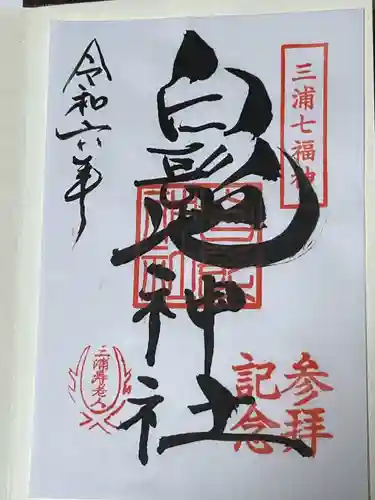 三浦七福神
白髭神社
令和六年
三浦寿老人
参拝
記念